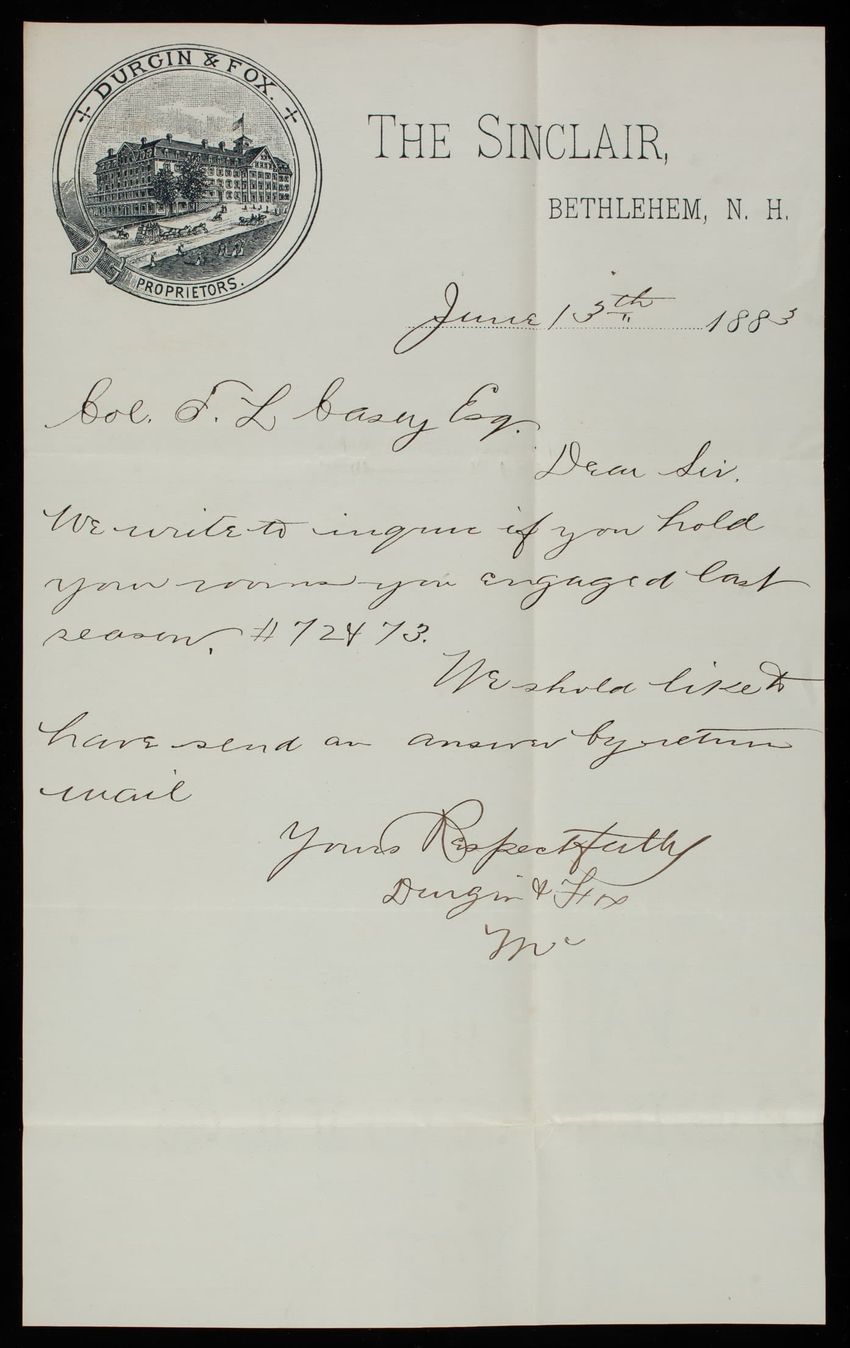 DURGIN & FOX.
PROPRIETORS.
THE SINCLAIR,
BETHLEHEM, N. H.
June 13th 1883
Col. T. L Casey Esq.
Dear Sir.
We write to inquire if you hold
your rooms you engaged last
season. # 72 & 73.
We shold like to
have send an answer by return
mail
Yours Respectfully
Durgin & Fox